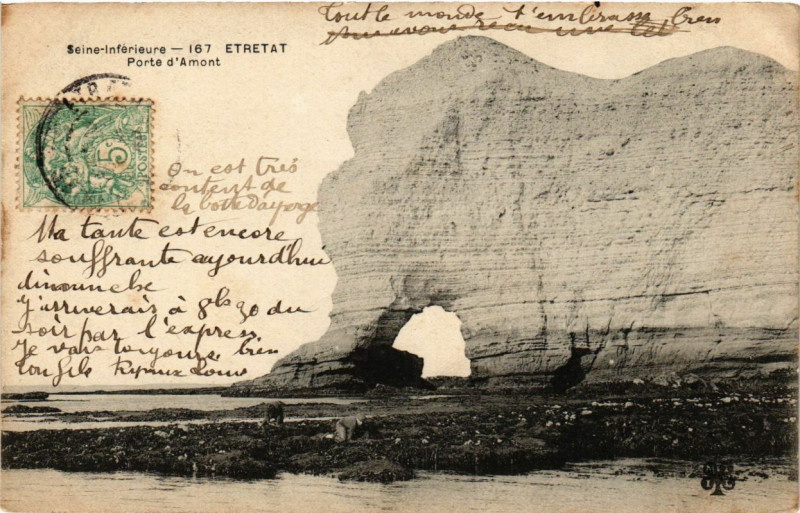 Tout le monde t'embrasse bien
Seine-Inférieure — 167 ETRETAT
Porte d'Amont
5
POSTES
On est très
content de
la
Ma tante est encore
souffrante aujourd'hui
dimanche
J'arriverais à 8h 30 du
soir par l'express
Je vais toujours bien
ton fils Louis